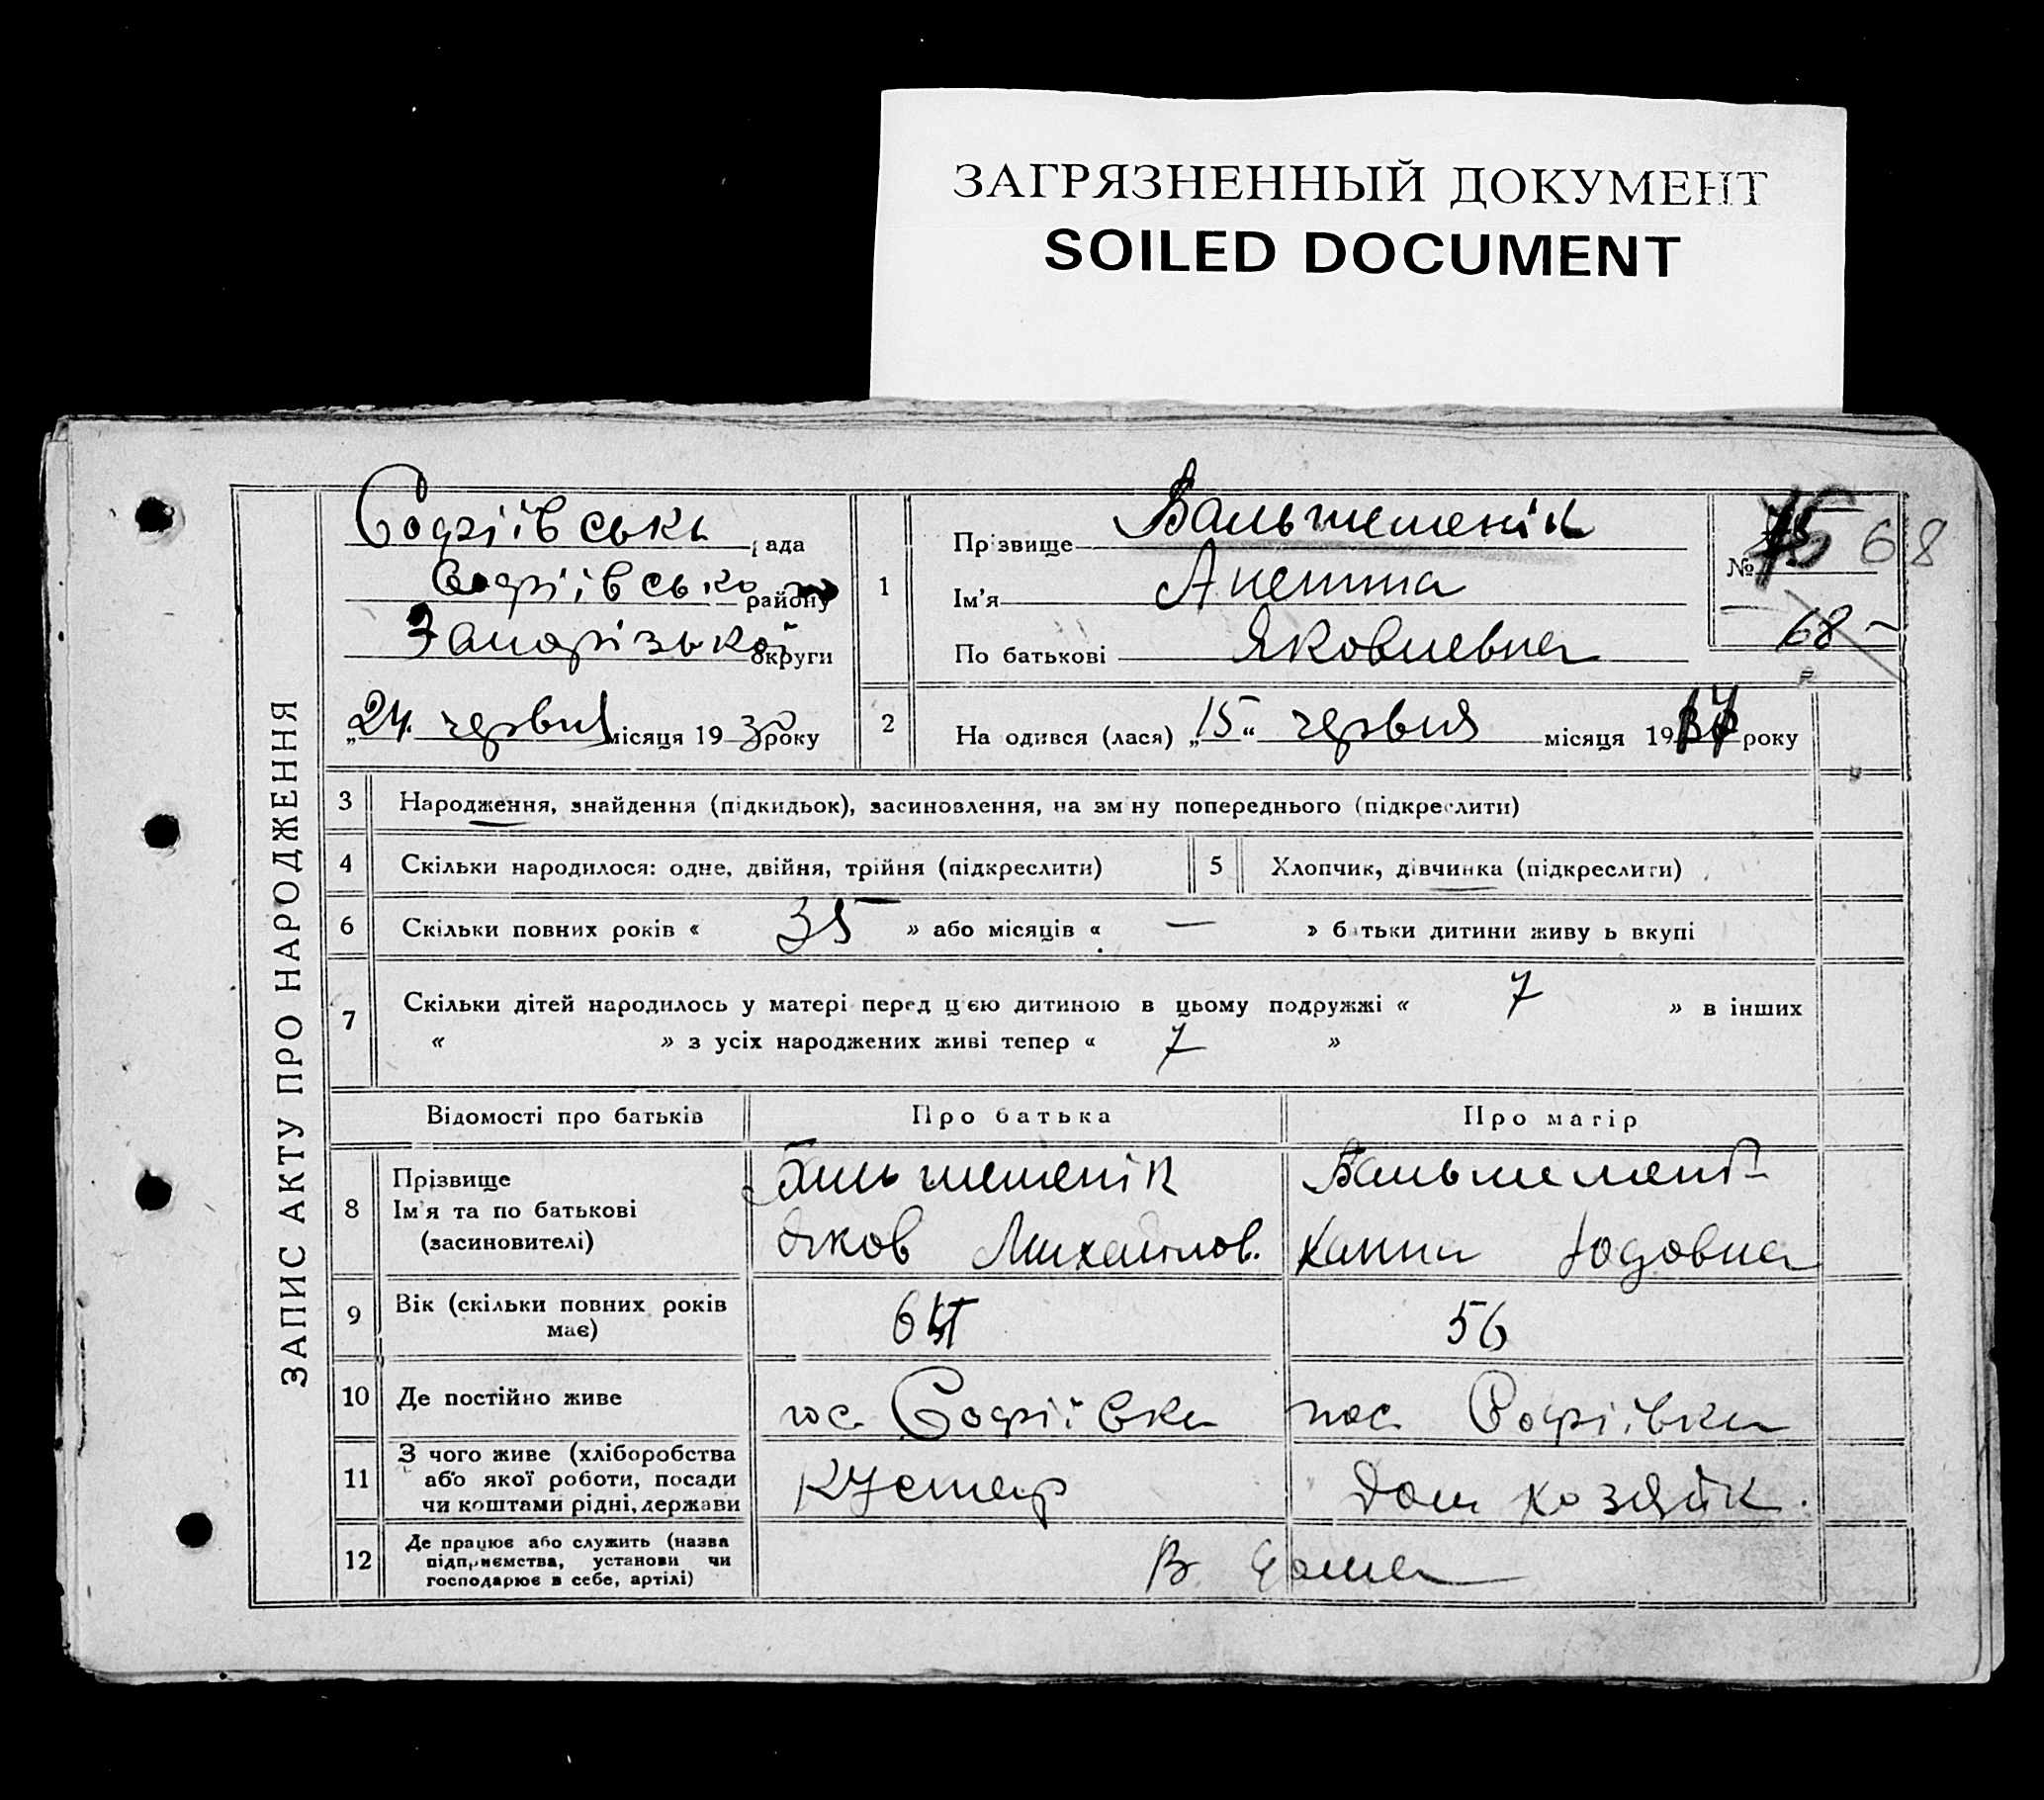 ЗАГРЯЗНЕННЫЙ ДОКУМЕНТ
SOILED DOCUMENT
ЗАПИС АКТУ ПРО НАРОДЖЕННЯ
Софіївськ рада
Софіївсько району
Запорізької округи
„24. червня місяця 1930 року
1
Прізвище
Ім'я Анетта
По батькові Яковлевна
№ 75 68
68 –
2
Народився (лася) „15“ червня місяця 19 року
3 Народження, знайдення (підкидьок), засиновлення, на зміну попереднього (підкреслити)
4 Скільки народилося: одне, двійня, трійня (підкреслити)
5 Хлопчик, дівчинка (підкреслити)
6 Скільки повних років « 35 » або місяців « — » батьки дитини живуть вкупі
7 Скільки дітей народилось у матері перед цією дитиною в цьому подружжі « 7 » в інших
« » з усіх народжених живі тепер « 7 »
Відомості про батьків Про батька Про матір
8 Прізвище
Ім'я та по батькові
(засиновителі)
Яков Михайлов.
Ханна Юдовна
9 Вік (скільки повних років
має)
56
10 Де постійно живе
пос. Софіївка
пос. Софіївка
11 З чого живе (хліборобства
або якої роботи, посади
чи коштами рідні, держави
Кустар
Дом хозяйк.
12 Де працює або служить (назва
підприємства, установи чи
господарює в себе, артілі)
В дома